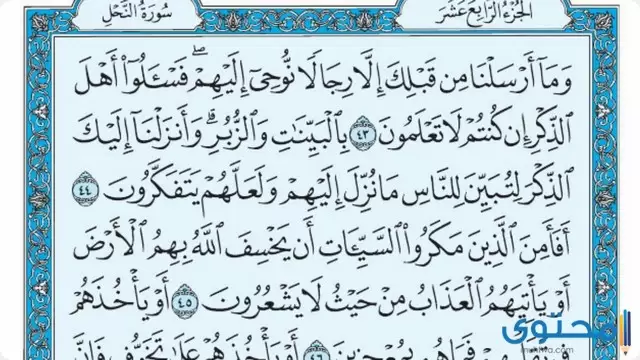 الجُزْءُ الرَّابِعَ عَشَرَ
سُورَةُ النَّحْلِ
وَمَآ أَرْسَلْنَا مِن قَبْلِكَ إِلَّا رِجَالًا نُّوحِىٓ إِلَيْهِمْ ۖ فَسْـَٔلُوٓا۟ أَهْلَ
ٱلذِّكْرِ إِن كُنتُمْ لَا تَعْلَمُونَ ٤٣ بِٱلْبَيِّنَـٰتِ وَٱلزُّبُرِ ۗ وَأَنزَلْنَآ إِلَيْكَ
ٱلذِّكْرَ لِتُبَيِّنَ لِلنَّاسِ مَا نُزِّلَ إِلَيْهِمْ وَلَعَلَّهُمْ يَتَفَكَّرُونَ ٤٤
أَفَأَمِنَ ٱلَّذِينَ مَكَرُوا۟ ٱلسَّيِّـَٔاتِ أَن يَخْسِفَ ٱللَّهُ بِهِمُ ٱلْأَرْضَ
أَوْ يَأْتِيَهُمُ ٱلْعَذَابُ مِنْ حَيْثُ لَا يَشْعُرُونَ ٤٥ أَوْ يَأْخُذَهُمْ
فَمَا هُم بِمُعْجِزِينَ ٤٦ أَوْ يَأْخُذَهُمْ عَلَىٰ تَخَوُّفٍ فَإِنَّ
محتوى